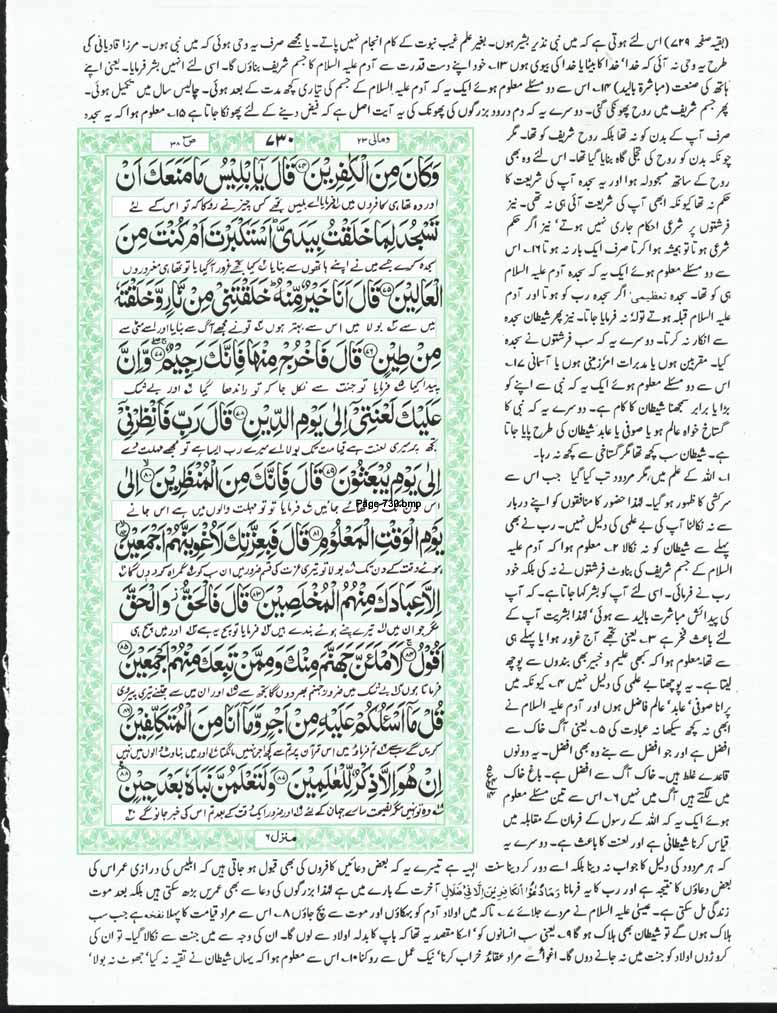 (بقیہ صفحہ ۷۲۹) اس لئے ہوتی ہے کہ میں نبی نذیر بشیر ہوں۔ بغیر علم غیب نبوت کے کام انجام نہیں پاتے۔ یا مجھے صرف یہ وحی ہوئی کہ میں نبی ہوں۔ مرزا قادیانی کی
طرح یہ وحی نہ آئی کہ خدا کا بیٹا یا خدا کی بیوی ہوں ۱۳؎ خود اپنے دست قدرت سے آدم علیہ السلام کا جسم شریف بناؤں گا۔ اسی لئے انہیں بشر فرمایا۔ یعنی اپنے
ہاتھ کی صنعت (مباشرۃ بالید) ۱۴؎ اس سے دو مسئلے معلوم ہوئے ایک یہ کہ آدم علیہ السلام کے جسم کی تیاری کچھ مدت کے بعد ہوئی۔ چالیس سال میں تکمیل ہوئی۔
پھر جسم شریف میں روح پھونکی گئی۔ دوسرے یہ کہ دم درود بزرگوں کی پھونک کی یہ آیت اصل ہے کہ فیض دینے کے لئے پھونکا جاتا ہے ۱۵؎ معلوم ہوا کہ یہ سجدہ
ومالی ۲۳
۷۳۰
ص ۳۸
وَكَانَ مِنَ الْكٰفِرِيْنَ ﴿۷۴﴾ قَالَ يٰۤاِبْلِيْسُ مَا مَنَعَكَ اَنْ
اور وہ تھا ہی کافروں میں فرمایا اے ابلیس تجھے کس چیز نے روکا کہ تو اس کے لئے
تَسْجُدَ لِمَا خَلَقْتُ بِيَدَيَّ ؕ اَسْتَكْبَرْتَ اَمْ كُنْتَ مِنَ
سجدہ کرے جسے میں نے اپنے ہاتھوں سے بنایا کیا تجھے غرور آگیا یا تو تھا ہی مغروروں
الْعَالِيْنَ ﴿۷۵﴾ قَالَ اَنَا خَيْرٌ مِّنْهُ ؕ خَلَقْتَنِيْ مِنْ نَّارٍ وَّخَلَقْتَهٗ
میں سے بولا میں اس سے بہتر ہوں تو نے مجھے آگ سے بنایا اور اسے مٹی سے
مِنْ طِيْنٍ ﴿۷۶﴾ قَالَ فَاخْرُجْ مِنْهَا فَاِنَّكَ رَجِيْمٌ ﴿۷۷﴾ وَّاِنَّ
پیدا کیا فرمایا تو جنت سے نکل جا کہ تو راندھا گیا اور بے شک
عَلَيْكَ لَعْنَتِيْۤ اِلٰى يَوْمِ الدِّيْنِ ﴿۷۸﴾ قَالَ رَبِّ فَاَنْظِرْنِيْۤ
تجھ پر میری لعنت ہے قیامت تک بولا اے میرے رب ایسا ہے تو مجھے مہلت دے
اِلٰى يَوْمِ يُبْعَثُوْنَ ﴿۷۹﴾ قَالَ فَاِنَّكَ مِنَ الْمُنْظَرِيْنَ ﴿۸۰﴾ اِلٰى
Page-730.bmp
اس دن تک کہ اٹھائے جائیں فرمایا تو تو مہلت والوں میں ہے اس جانے
يَوْمِ الْوَقْتِ الْمَعْلُوْمِ ﴿۸۱﴾ قَالَ فَبِعِزَّتِكَ لَاُغْوِيَنَّهُمْ اَجْمَعِيْنَ ﴿۸۲﴾
ہوئے وقت کے دن تک بولا تو تیری عزت کی قسم ضرور میں ان سب کو گمراہ کر دوں گا
اِلَّا عِبَادَكَ مِنْهُمُ الْمُخْلَصِيْنَ ﴿۸۳﴾ قَالَ فَالْحَقُّ ۫ وَالْحَقَّ
مگر جو ان میں تیرے چنے ہوئے بندے ہیں فرمایا تو سچ یہ ہے اور میں سچ ہی
اَقُوْلُ ﴿۸۴﴾ لَاَمْلَئَنَّ جَهَنَّمَ مِنْكَ وَمِمَّنْ تَبِعَكَ مِنْهُمْ اَجْمَعِيْنَ ﴿۸۵﴾
فرماتا ہوں بے شک میں ضرور جہنم بھر دوں گا تجھ سے اور ان میں سے جتنے تیری پیروی
قُلْ مَاۤ اَسْئَلُكُمْ عَلَيْهِ مِنْ اَجْرٍ وَّمَاۤ اَنَا مِنَ الْمُتَكَلِّفِيْنَ ﴿۸۶﴾
کریں گے سب سے تم فرماؤ میں اس قرآن پر تم سے کچھ اجر نہیں مانگتا اور میں بناوٹ والوں میں نہیں
اِنْ هُوَ اِلَّا ذِكْرٌ لِّلْعٰلَمِيْنَ ﴿۸۷﴾ وَلَتَعْلَمُنَّ نَبَاَهٗ بَعْدَ حِيْنٍ ﴿۸۸﴾
وہ تو نہیں مگر نصیحت سارے جہان کے لئے اور ضرور ایک وقت کے بعد تم اس کی خبر جانو گے
منزل ۶
صرف آپ کے بدن کو نہ تھا بلکہ روح شریف کو تھا۔ مگر
چونکہ بدن کو روح کی تجلی گاہ بنایا گیا تھا۔ اس لئے وہ بھی
روح کے ساتھ مسجودلہ ہوا اور یہ سجدہ آپ کی شریعت کا
حکم نہ تھا کیونکہ ابھی آپ کی شریعت آئی ہی نہ تھی۔ نیز
فرشتوں پر شرعی احکام جاری نہیں ہوتے' نیز اگر حکم
شرعی ہوتا تو ہمیشہ ہوا کرتا صرف ایک بار نہ ہوتا ۱۶؎ اس
سے دو مسئلے معلوم ہوئے ایک یہ کہ یہ سجدہ آدم علیہ السلام
ہی کو تھا۔ سجدہ تعظیمی' اگر سجدہ رب کو ہوتا اور آدم
علیہ السلام قبلہ ہوتے تو لہٗ نہ فرمایا جاتا۔ نیز پھر شیطان سجدہ
سے انکار نہ کرتا۔ دوسرے یہ کہ سب فرشتوں نے سجدہ
کیا۔ مقربین ہوں یا مدبرات امر زمینی ہوں یا آسمانی ۱۷؎
اس سے دو مسئلے معلوم ہوئے ایک یہ کہ نبی سے اپنے کو
بڑا یا برابر سمجھنا شیطان کا کام ہے۔ دوسرے یہ کہ نبی کا
گستاخ خواہ عالم ہو یا صوفی یا عابد شیطان کی طرح پایا جاتا
ہے۔ شیطان سب کچھ تھا مگر گستاخی سے کچھ نہ رہا۔
۱؎ اللہ کے علم میں' مگر مردود تب کیا گیا جب اس سے
سرکشی کا ظہور ہو گیا۔ لہٰذا حضور کا منافقوں کو اپنے دربار
سے نہ نکالنا آپ کی بے علمی کی دلیل نہیں۔ رب نے بھی
پہلے سے شیطان کو نہ نکالا ۲؎ معلوم ہوا کہ آدم علیہ
السلام کے جسم شریف کی بناوٹ فرشتوں نے نہ کی بلکہ خود
رب نے فرمائی۔ اسی لئے آپ کو بشر کہا جاتا ہے۔ کہ آپ
کی پیدائش مباشرت بالید سے ہوئی' لہٰذا بشریت آپ کے
لئے باعث فخر ہے ۳؎ یعنی تجھے آج غرور ہوا یا پہلے ہی
سے تھا۔ معلوم ہوا کہ کبھی علیم و خبیر بھی بندوں سے پوچھ
لیتا ہے۔ یہ پوچھنا بے علمی کی دلیل نہیں ۴؎ کیونکہ میں
پرانا صوفی' عابد' عالم فاضل ہوں اور آدم علیہ السلام نے
ابھی نہ کچھ سیکھا نہ عبادت کی ۵؎ یعنی آگ خاک سے
افضل ہے اور جو افضل سے بنے وہ بھی افضل۔ یہ دونوں
قاعدے غلط ہیں۔ خاک آگ سے افضل ہے۔ باغ خاک
میں لگتے ہیں آگ میں نہیں ۶؎ اس سے تین مسئلے معلوم
ہوئے ایک یہ کہ اللہ کے رسول کے فرمان کے مقابلہ میں
قیاس کرنا شیطانی ہے اور لعنت کا باعث ہے۔ دوسرے یہ
کہ ہر مردود کی دلیل کا جواب نہ دینا بلکہ اسے دور کر دینا سنت الٰہیہ ہے تیسرے یہ کہ بعض دعائیں کافروں کی بھی قبول ہو جاتی ہیں کہ ابلیس کی درازی عمر اس کی
بعض دعاؤں کا نتیجہ ہے اور رب کا یہ فرمانا وَمَا دُعٰٓؤُا الْكَافِرِيْنَ اِلَّا فِيْ ضَلٰلٍ آخرت کے بارے میں ہے لہٰذا بزرگوں کی دعا سے بھی عمریں بڑھ سکتی ہیں بلکہ بعد موت
زندگی مل سکتی ہے۔ عیسیٰ علیہ السلام نے مردے جلائے ۷؎ تاکہ میں اولاد آدم کو بہکاؤں اور موت سے بچ جاؤں ۸؎ اس سے مراد قیامت کا پہلا نفخہ ہے جب سب
ہلاک ہوں گے تو شیطان بھی ہلاک ہو گا ۹؎ یعنی سب انسانوں کو' اسکا مقصد یہ تھا کہ باپ کا بدلہ اولاد سے لوں گا۔ ان کی وجہ سے میں جنت سے نکالا گیا۔ تو ان کی
کروڑوں اولاد کو جنت میں نہ جانے دوں گا۔ اغوا سے مراد عقائد خراب کرنا' نیک عمل سے روکنا ۱۰؎ اس سے معلوم ہوا کہ یہاں شیطان نے تقیہ نہ کیا' جھوٹ نہ بولا'